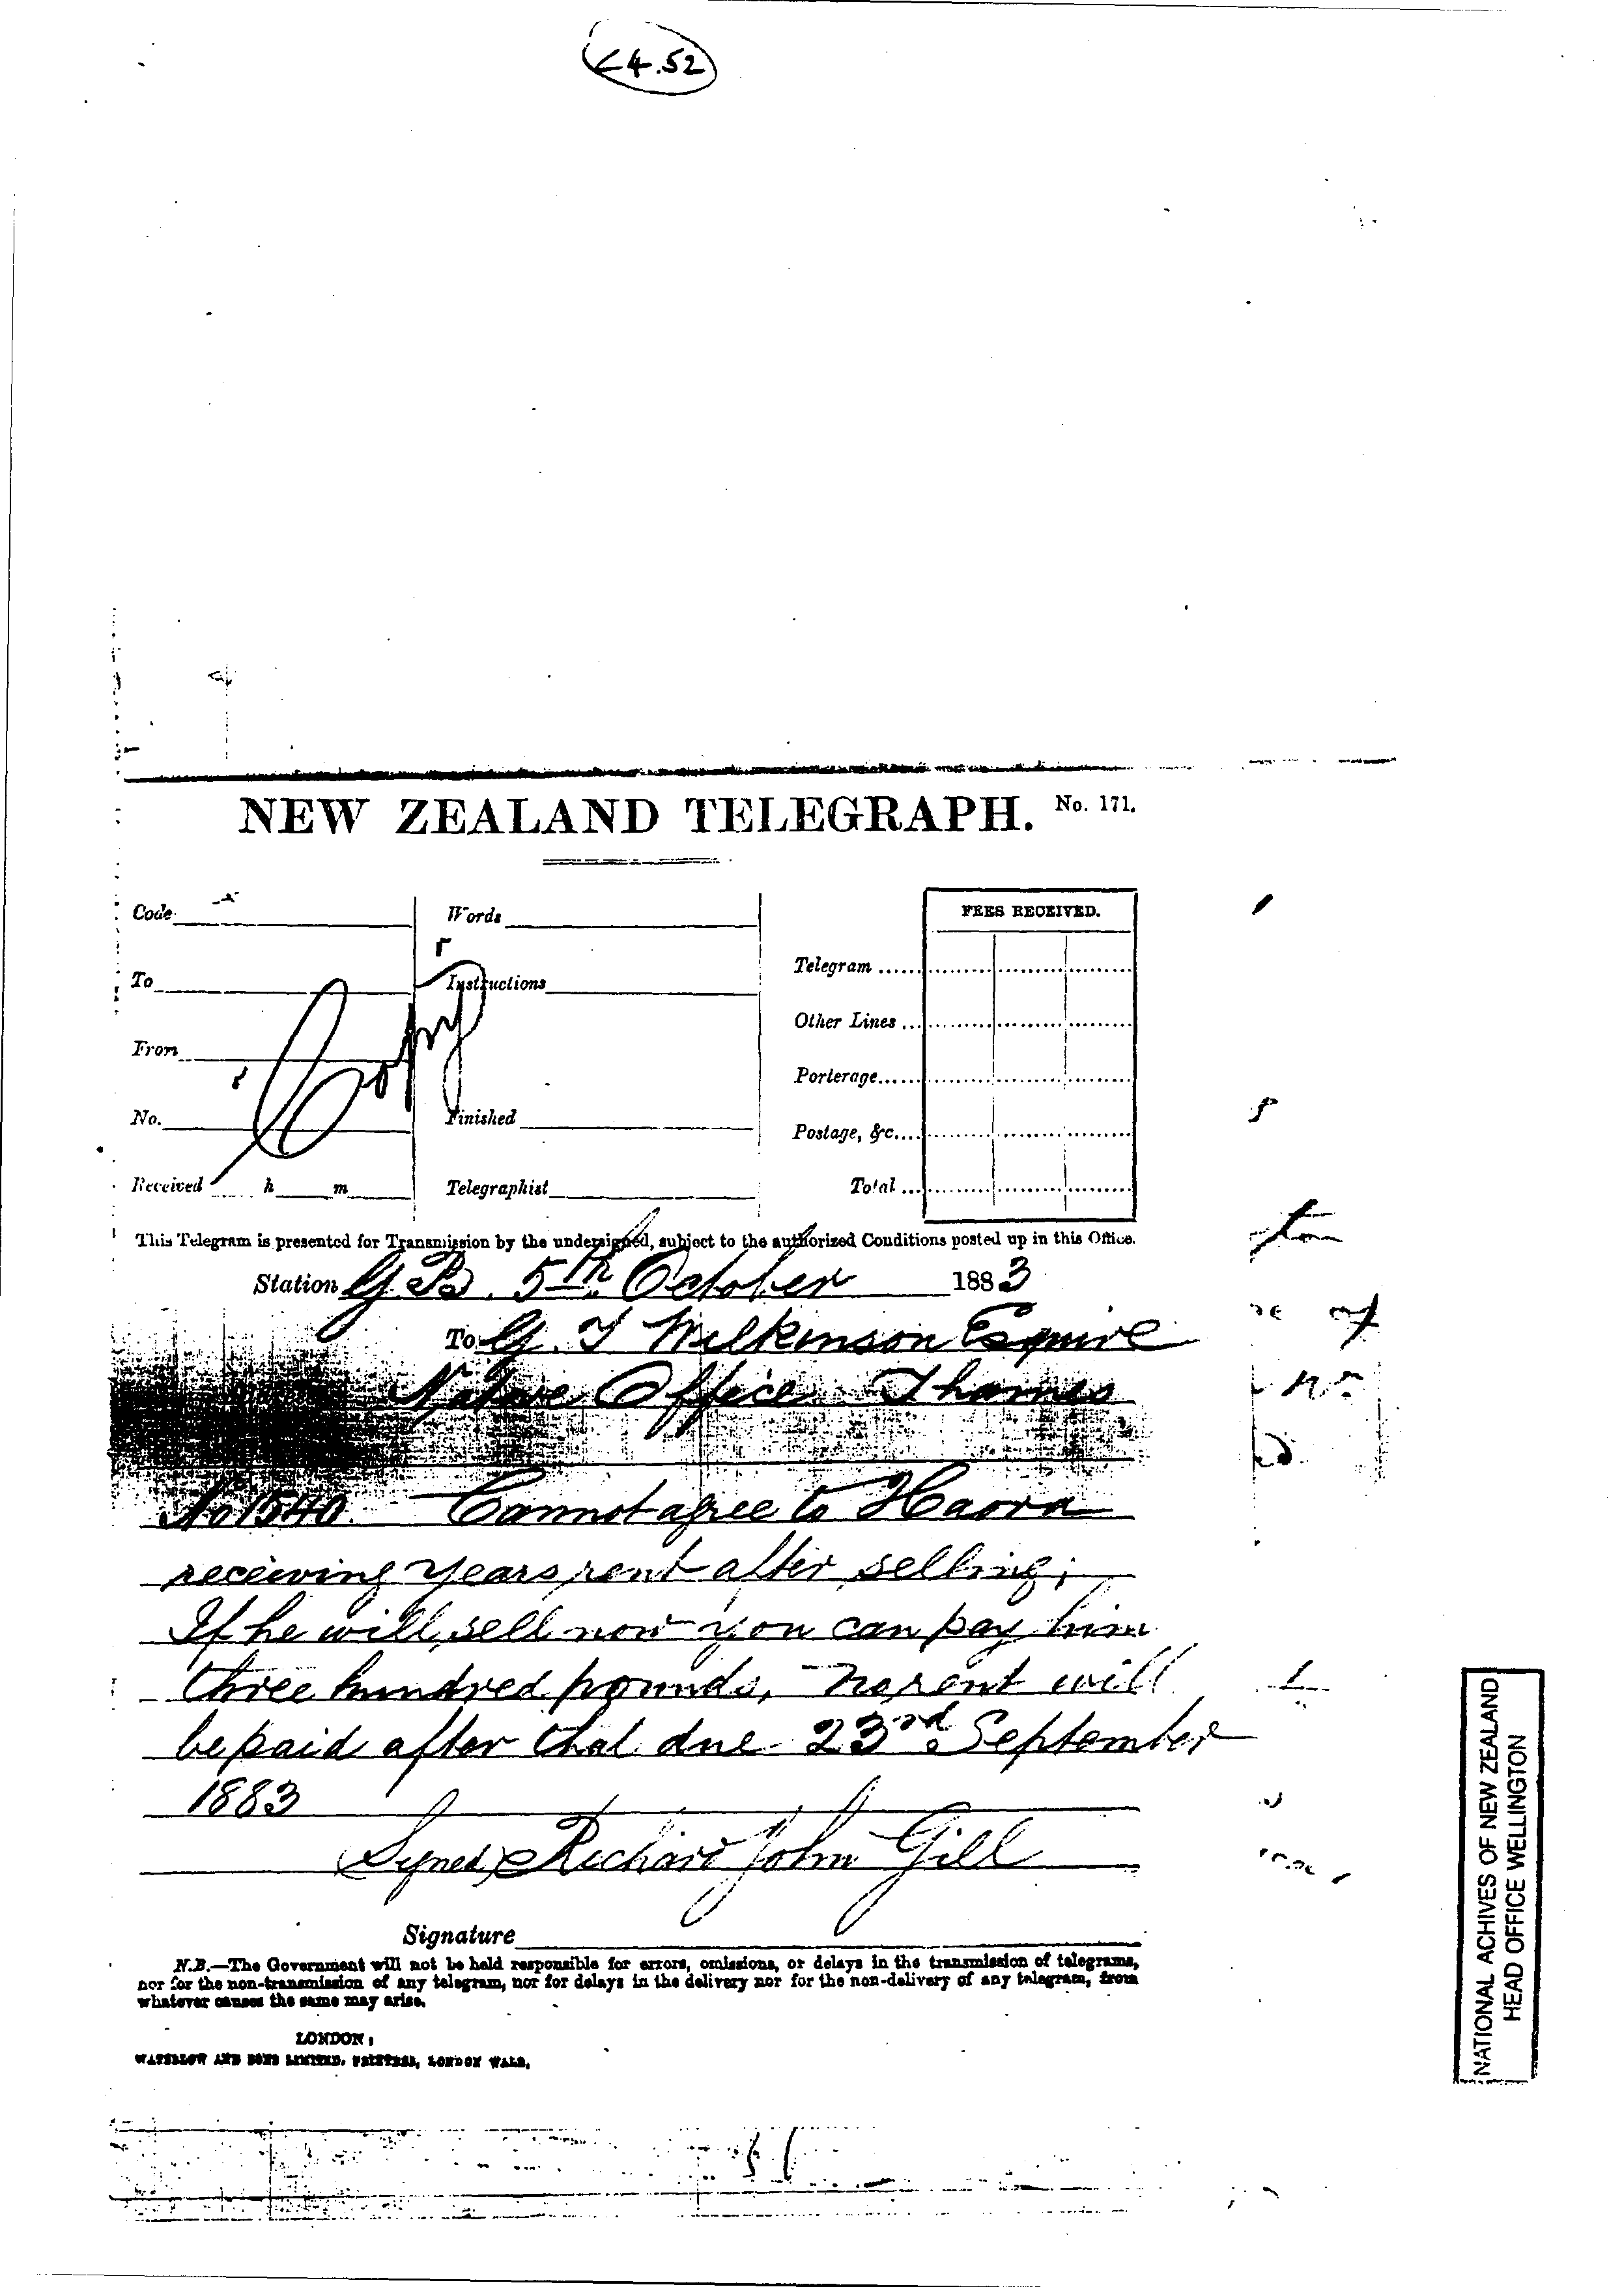 <4.52
NEW ZEALAND TELEGRAPH. No. 171.
Code
Words
FEES RECEIVED.
To
Instructions
Telegram ......
Other Lines ...
From
Copy
Porterage......
No.
Finished
Postage, &c....
Received h m
Telegraphist
Total ...
This Telegram is presented for Transmission by the undersigned, subject to the authorized Conditions posted up in this Office.
Station G.B. 5th October 1883
To G. T Wilkinson Esquire
Native Office Thames
No 1540. Cannot agree to Haora
receiving years rent after selling;
If he will sell now you can pay him
three hundred pounds, no rent will
be paid after that due 23rd September
1883
Signed, Richard John Gill
Signature
N.B.—The Government will not be held responsible for errors, omissions, or delays in the transmission of telegrams,
nor for the non-transmission of any telegram, nor for delays in the delivery nor for the non-delivery of any telegram, from
whatever causes the same may arise.
LONDON:
WATERLOW AND SONS LIMITED, PRINTERS, LONDON WALL.
NATIONAL ACHIVES OF NEW ZEALAND
HEAD OFFICE WELLINGTON